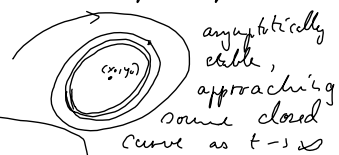 asymptotically
stable,
(x₀,y₀)
approaching
some closed
curve as t→∞